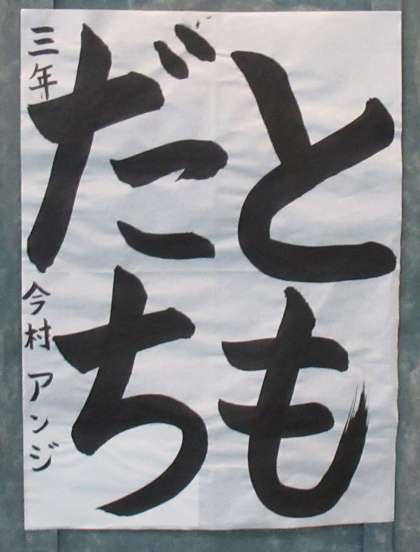 とも
だち
三年 今村 アンジ